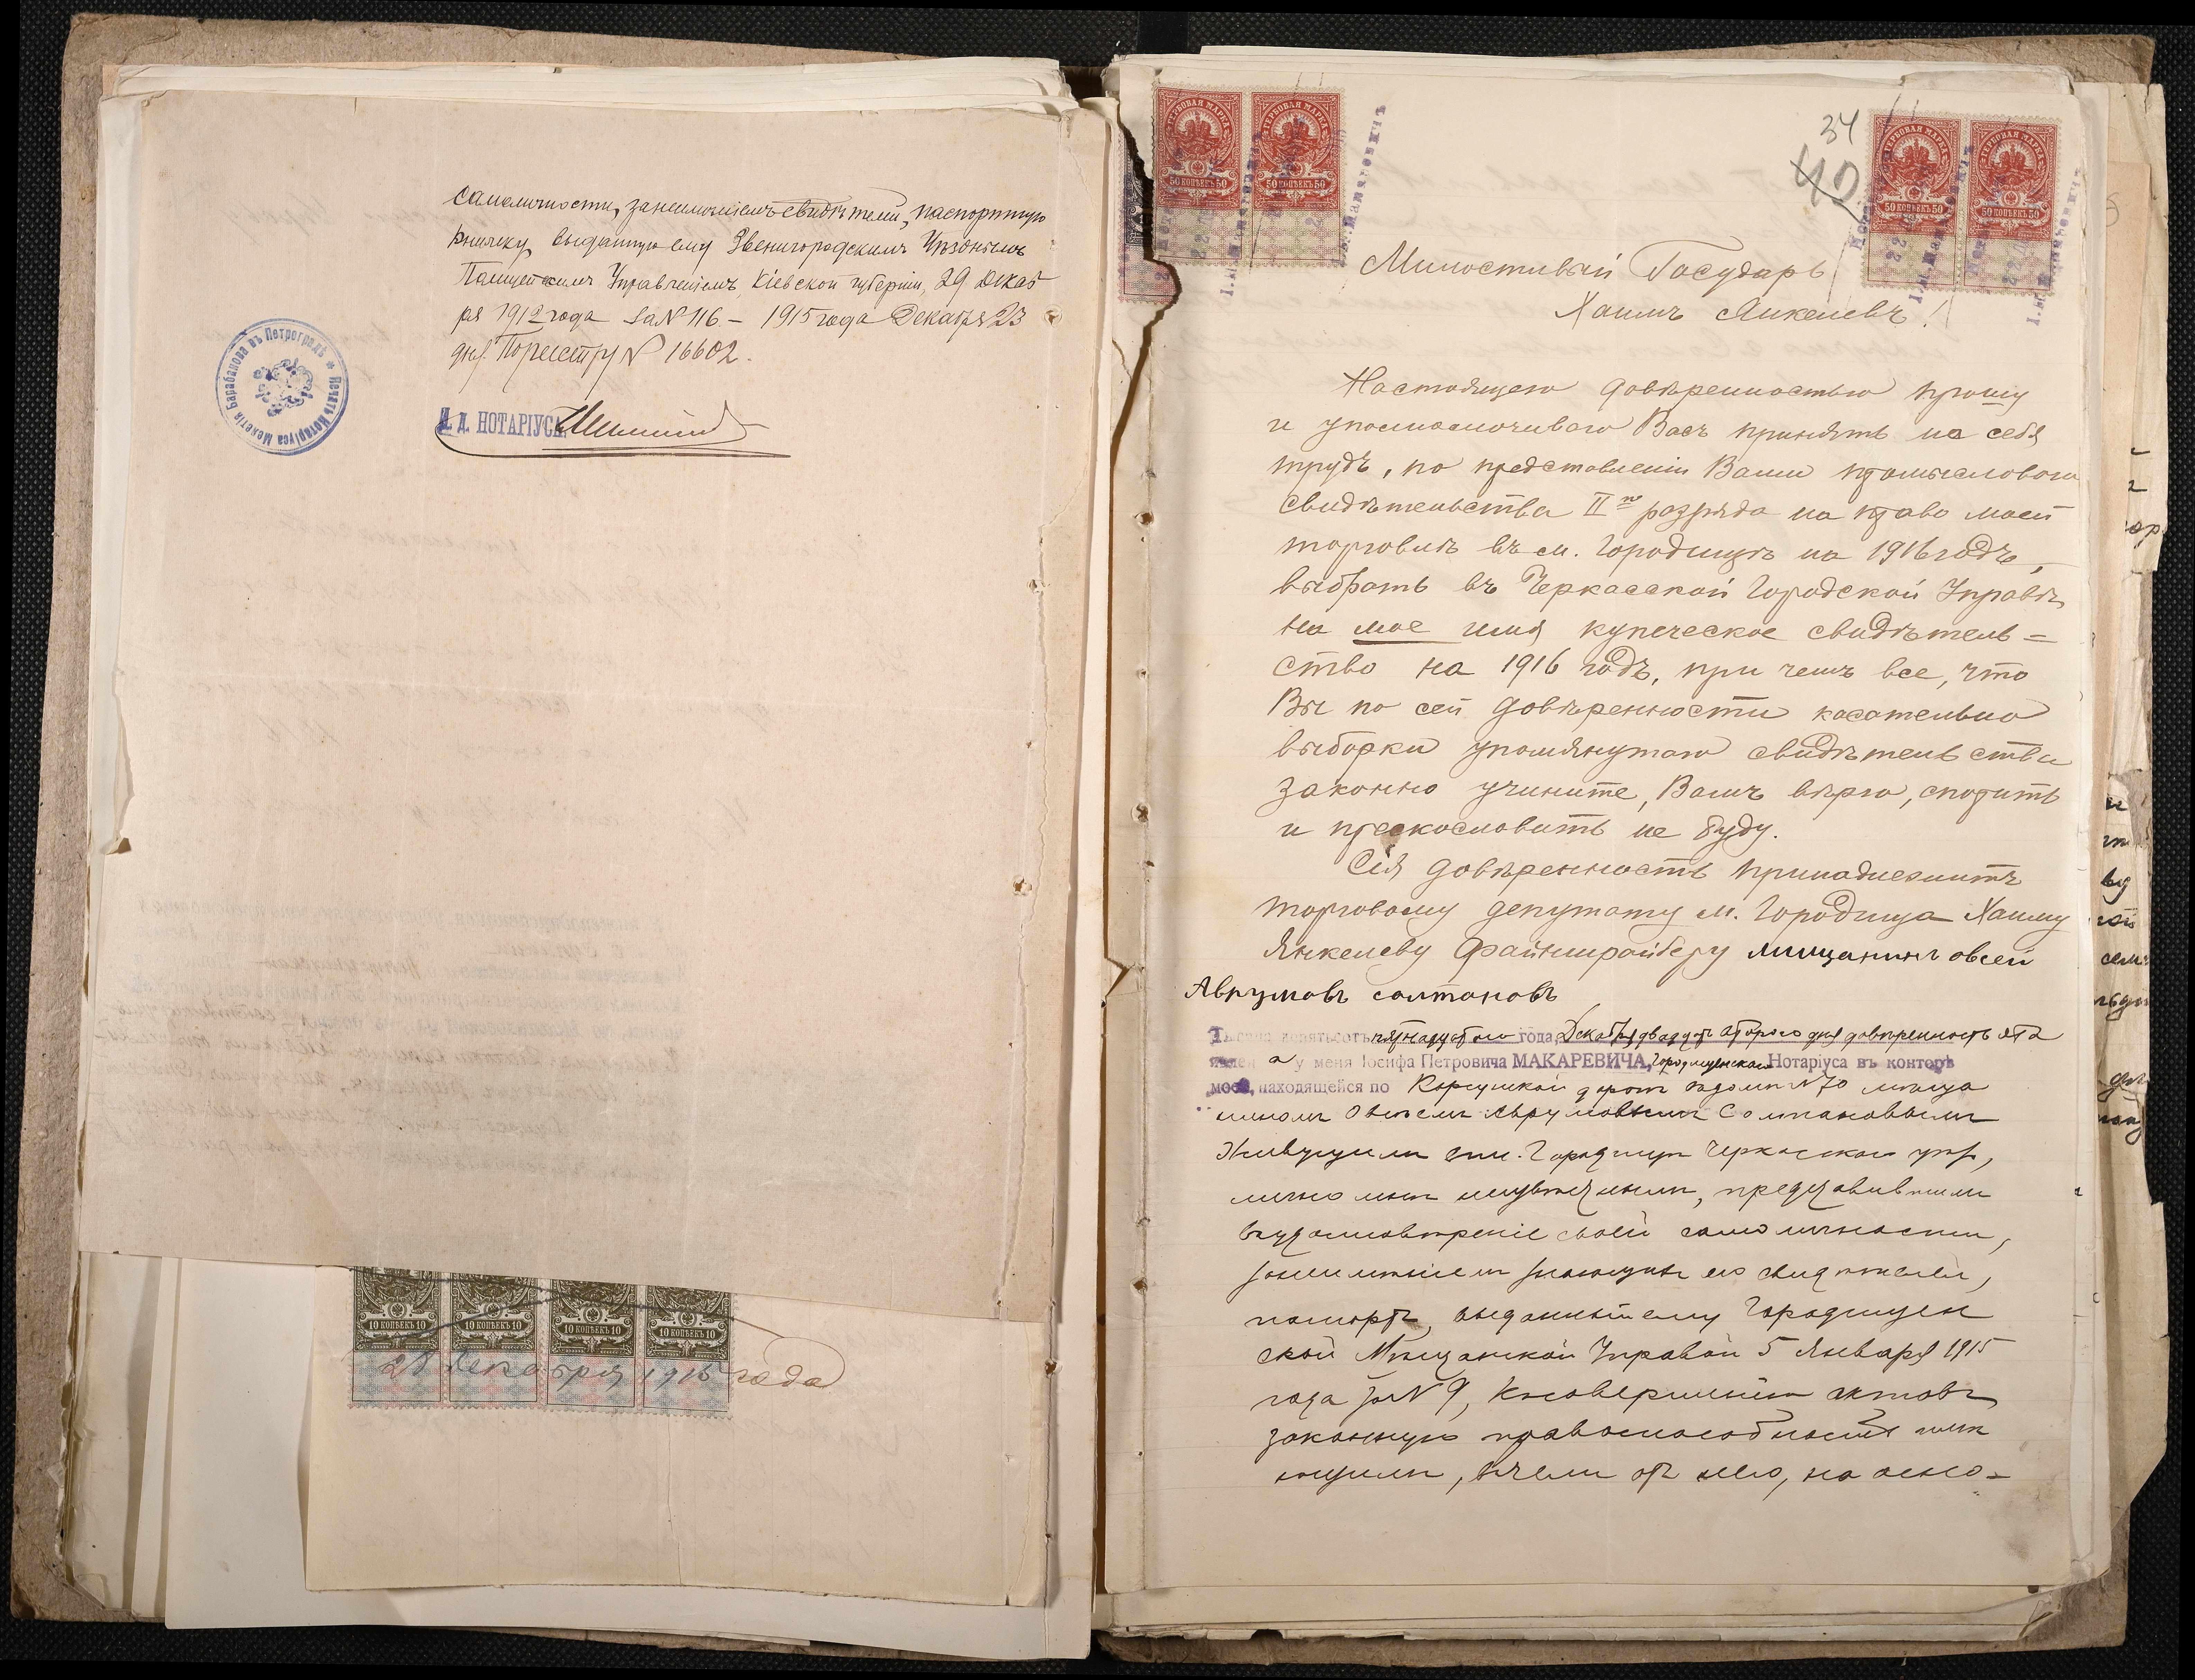 самоличности, за неимѣніемъ свидѣтелей, паспортную
книжку, выданную ему Звенигородскимъ Уѣзднымъ
Полицейскимъ Управленіемъ, Кіевской губерніи, 29 Декаб
ря 1912 года за № 116 – 1915 года Декабря 23
дня. По реестру № 16602.
И. Д. НОТАРІУСА
Печать Нотаріуса Мокетія Барабанова въ Петроградѣ
10 КОПѢЕКЪ 10
10 КОПѢЕКЪ 10
10 КОПѢЕКЪ 10
10 КОПѢЕКЪ 10
28 Декабря 1915 года
ГЕРБОВАЯ МАРКА
50 КОПѢЕКЪ 50
ГЕРБОВАЯ МАРКА
50 КОПѢЕКЪ 50
34
40
ГЕРБОВАЯ МАРКА
50 КОПѢЕКЪ 50
ГЕРБОВАЯ МАРКА
50 КОПѢЕКЪ 50
Милостивый Государь
Хаимъ Янкелевъ!
Настоящею довѣренностью прошу
и уполномочиваю Васъ принять на себя
трудъ, по представленіи Вами промысловаго
свидѣтельства II го разряда на право моей
торговли въ м. Городищѣ на 1916 годъ,
выбрать въ Черкасской Городской Управѣ,
на мое имя купеческое свидѣтель=
ство на 1916 годъ, при чемъ все, что
Вы по сей довѣренности касательно
выборки упомянутаго свидѣтельства
законно учините, Вамъ вѣрю, спорить
и прекословить не буду.
Сія довѣренность принадлежитъ
торговому депутату м. Городища Хаиму
Янкелеву Файнширайберу мищанинъ овсей
Аврумовъ солтановъ
Тысяча девятьсотъ пятнадцатаго года, Декабря двадцать второго дня довѣренность эта
явлен а у меня Іосифа Петровича МАКАРЕВИЧА, Городищенскаго Нотаріуса въ конторѣ
моей, находящейся по Корсунской дорогѣ въ домѣ № 70 мѣща
ниномъ Овсеемъ Аврумовымъ Солтановымъ
живущимъ въ м. Городищѣ Черкасскаго уѣз.,
лично мнѣ неизвѣстнымъ, представившимъ
въ удостовѣреніе своей самоличности,
за неимѣніемъ знающихъ его свидѣтелей,
паспортъ, выданный ему Городищен
ской Мѣщанской Управой 5 Января 1915
года за № 9, къ совершенію актовъ
законную правоспособность имѣ
ющимъ, въ чемъ отъ него, на осно–